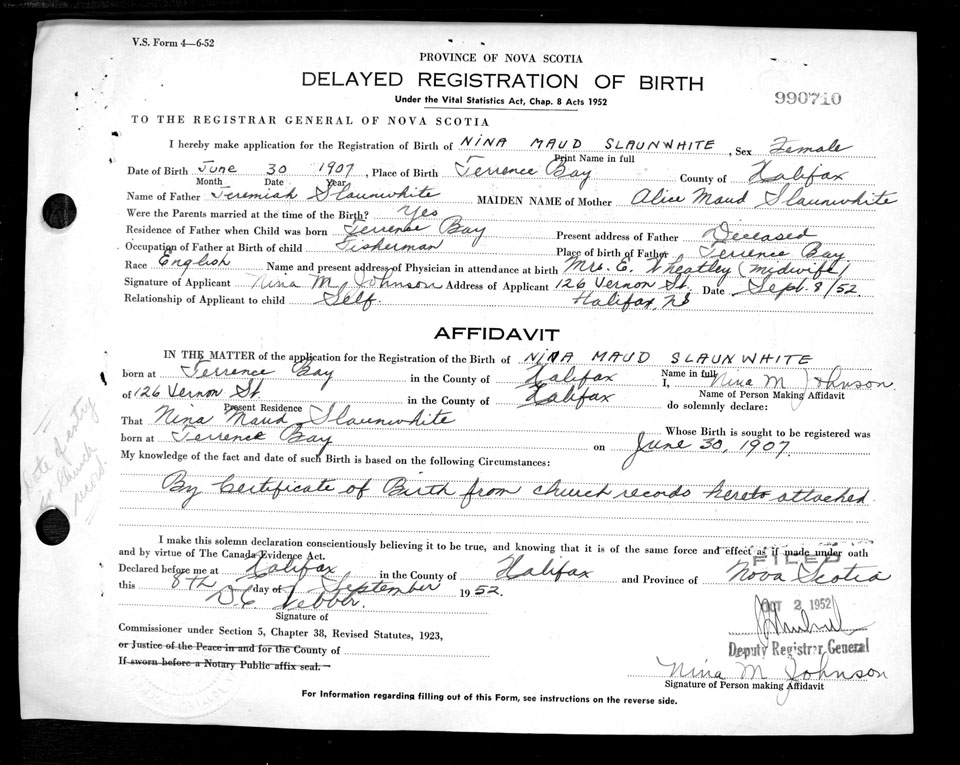 V.S. Form 4—6-52
PROVINCE OF NOVA SCOTIA
DELAYED REGISTRATION OF BIRTH
Under the Vital Statistics Act, Chap. 8 Acts 1952
990710
TO THE REGISTRAR GENERAL OF NOVA SCOTIA
I hereby make application for the Registration of Birth of NINA MAUD SLAUNWHITE, Sex Female
Print Name in full
Date of Birth June 30 1907, Place of Birth Terrence Bay County of Halifax
Month Date Year
Name of Father Jeremiah Slaunwhite MAIDEN NAME of Mother Alice Maud Slaunwhite
Were the Parents married at the time of the Birth? Yes
Residence of Father when Child was born Terrence Bay Present address of Father Deceased
Occupation of Father at Birth of child Fisherman Place of birth of Father Terrence Bay
Race English Name and present address of Physician in attendance at birth Mrs. E. Wheatley (midwife)
Signature of Applicant Nina M Johnson Address of Applicant 126 Vernon St. Date Sept. 8/52.
Relationship of Applicant to child Self. Halifax, NS
AFFIDAVIT
IN THE MATTER of the application for the Registration of the Birth of NINA MAUD SLAUNWHITE
Name in full
born at Terrence Bay in the County of Halifax I, Nina M Johnson.
Name of Person Making Affidavit
of 126 Vernon St in the County of Halifax do solemnly declare:
Present Residence
That Nina Maud Slaunwhite Whose Birth is sought to be registered was
born at Terrence Bay on June 30, 1907.
My knowledge of the fact and date of such Birth is based on the following Circumstances:
By Certificate of Birth from church records hereto attached.
Date of entry
Church
record.
I make this solemn declaration conscientiously believing it to be true, and knowing that it is of the same force and effect as if made under oath
and by virtue of The Canada Evidence Act.
FILED
Declared before me at Halifax in the County of Halifax and Province of Nova Scotia
this 8th day of September 1952.
OCT 2 1952
D.C. Webber.
Signature of
Commissioner under Section 5, Chapter 38, Revised Statutes, 1923,
or Justice of the Peace in and for the County of
If sworn before a Notary Public affix seal.
Deputy Registrar General
Nina M Johnson
Signature of Person making Affidavit
For Information regarding filling out of this Form, see instructions on the reverse side.